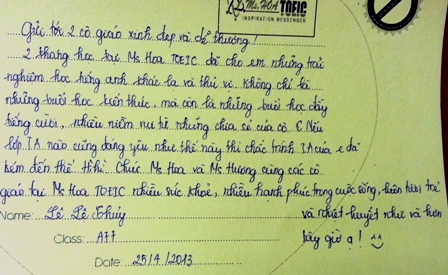 Ms. HOA TOEIC
INSPIRATION MESSENGER
Gửi tới 2 cô giáo xinh đẹp và dễ thương!
2 tháng học tại Ms Hoa TOEIC đã cho em những trải
nghiệm học tiếng anh khác lạ và thú vị. Không chỉ là
những buổi học kiến thức, mà còn là những buổi học đầy
tiếng cười, nhiều niềm vui từ những chia sẻ của cô. Nếu
lớp T.A nào cũng đáng yêu như thế này thì chắc trình T.A của e đã
kém đến thế thì. Chúc Ms Hoa và Ms Hương cùng các cô
giáo tại Ms Hoa TOEIC nhiều sức khoẻ, nhiều hạnh phúc trong cuộc sống, luôn tươi trẻ
Name: Lê Lệ Thủy và nhiệt huyết như và hơn
Class: A77 bây giờ ạ!
Date: 25/4/2013